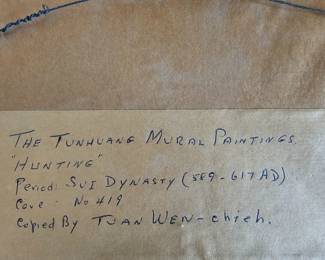 THE TUNHUANG MURAL PAINTINGS.
"HUNTING"
Period: SUI DYNASTY (589-617 AD)
Cave No 419
Copied By TUAN WEN-chieh.